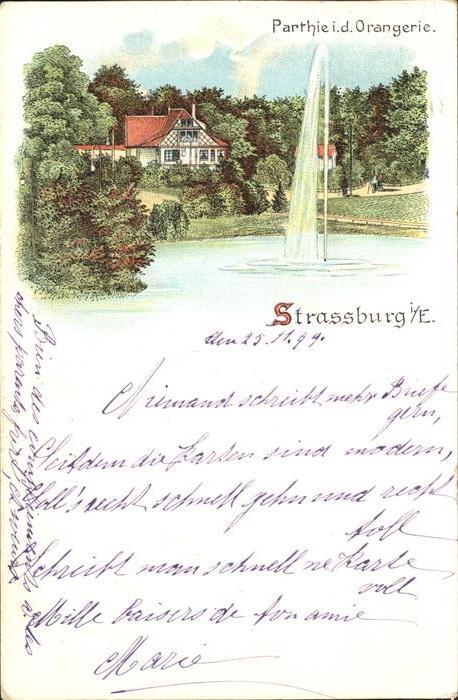 Parthie i. d. Orangerie.
Strassburg i/E.
den 25. 11. 99.
Niemand schreibt mehr Briefe
gern,
Seitdem die Karten sind modern,
Soll's recht schnell gehn und recht
toll
Schreibt man schnell ne Karte
voll
Mille baisers de ton amie
Marie
Bien des à tes
chers parents